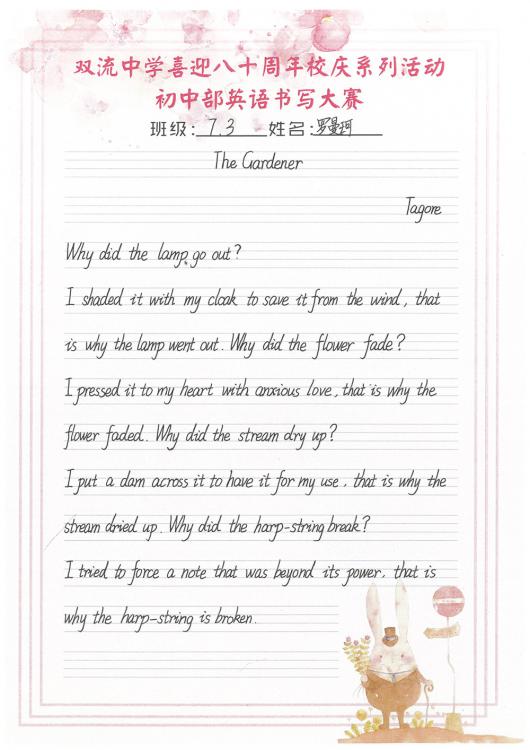 双流中学喜迎八十周年校庆系列活动
初中部英语书写大赛
班级: 7.3 姓名: 罗曼珂
The Gardener
Tagore
Why did the lamp go out?
I shaded it with my cloak to save it from the wind, that
is why the lamp went out. Why did the flower fade?
I pressed it to my heart with anxious love, that is why the
flower faded. Why did the stream dry up?
I put a dam across it to have it for my use, that is why the
stream dried up. Why did the harp-string break?
I tried to force a note that was beyond its power, that is
why the harp-string is broken.